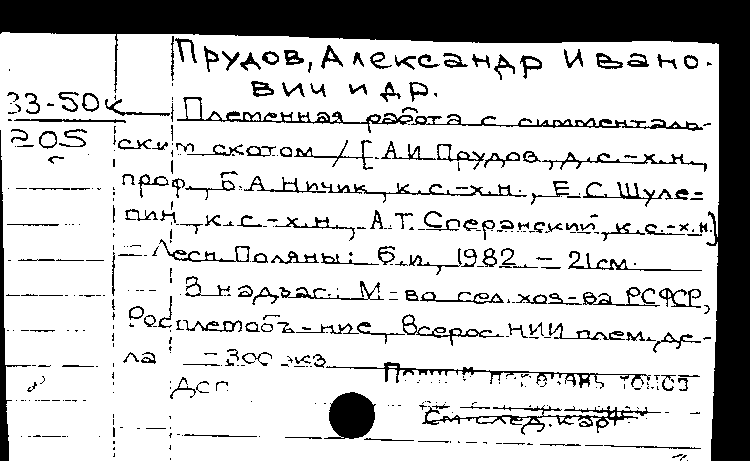 Прудов, Александр Ивано-
вич и др.
33-50к
205
с
Племенная работа с симменталь-
ским скотом / [А.И. Прудов, д.с.-х.н.,
проф., Б.А. Ничик, к.с.-х.н., Е.С. Шуле-
пин, к.с.-х.н., А.Т. Сперанский, к.с.-х.н.]
– Лесн. Поляны: б.и., 1982. – 21 см.
В надзаг.: М-во сел. хоз-ва РСФСР,
Росплемобъ-ние, Всерос. НИИ плем. де-
ла – 300 экз
Дсп
Полный перечень томов
См. след. карт